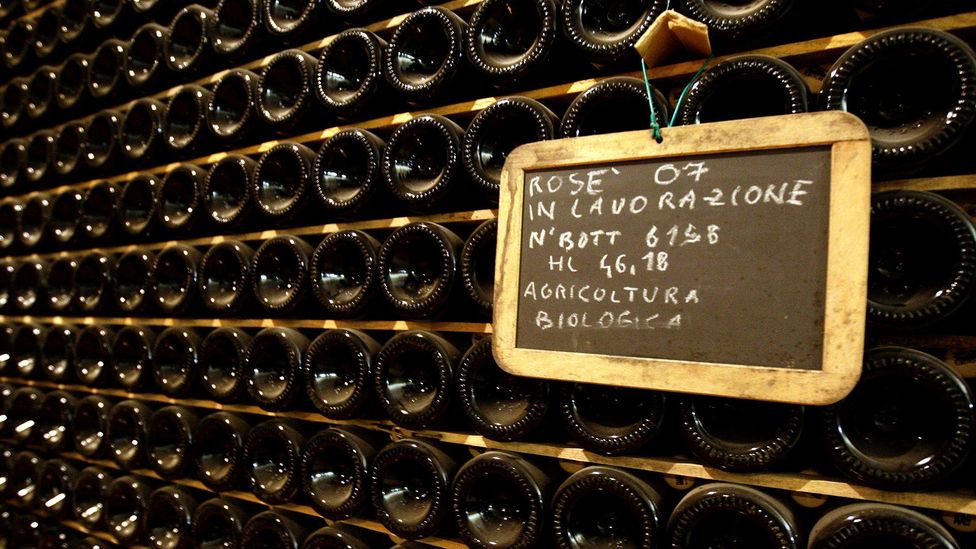 ROSE' 07
IN LAVORAZIONE
N' BOTT 6158
HL 46,18
AGRICOLTURA
BIOLOGICA